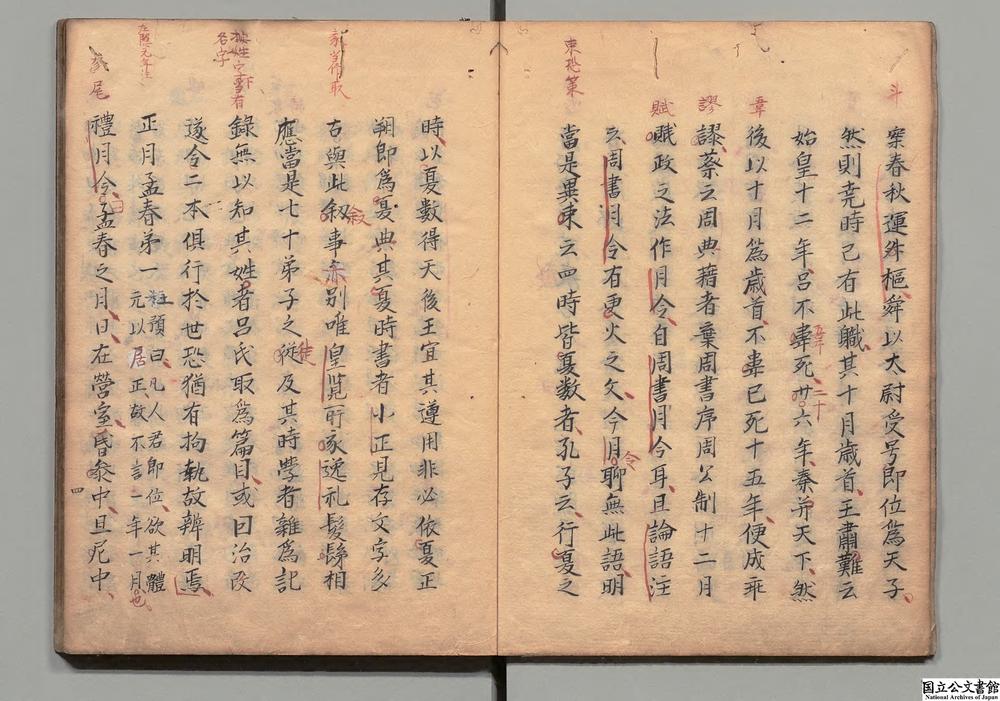 案春秋運斗樞舜以大尉受号即位為天子
然則尭時已有此職其十月歳首王肅難云
始皇十二年吕不韋死廿六年秦并天下然
後以十月為歳首不韋已死十五年便成乖
謬蔡云周典藉者葉周書序周公制十二月
賦政之法作月令自周書月令耳且論語注
云周書月令有更火之文今月聊無此語明
當是異束云四時皆夏数者孔子云行夏之
時以夏数得天後王宜其遵用非必依夏正
朔即為夏典其夏時書者小正見存文字多
古與此叙事亦別唯皇覧所家逸礼髣髴相
應當是七十弟子之徒及其時學者雜為記
錄無以知其姓者吕氏取為篇目或曰治改
遂令二本俱行於世恐猶有拘執故辨明焉
正月孟春弟一
杜預曰凡人君即位欲其體
元以居正故不言一年一月也
禮月令曰孟春之月日在營室昏参中旦尾中
斗
韋
謬
賦
束恐策
左隠元年注
尾
五年
二十
令
叙
徒
四
国立公文書館
National Archives of Japan